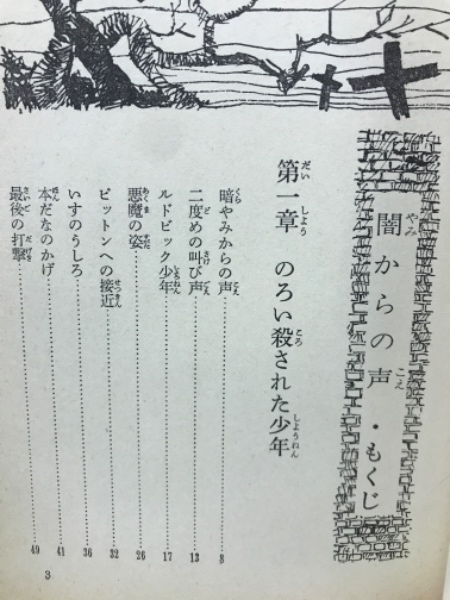 闇からの声・もくじ
第一章 のろい殺された少年
暗やみからの声 8
二度めの叫び声 13
ルドビック少年 17
悪魔の姿 26
ビットンへの接近 32
いすのうしろ 36
本だなのかげ 41
最後の打撃 49
3